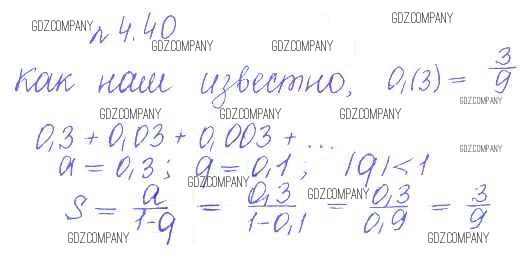 № 4.40
Как нам известно, 0,(3) = 3/9
0,3 + 0,03 + 0,003 + ...
a = 0,3; q = 0,1; |q| < 1
S = a/(1-q) = 0,3/(1-0,1) = 0,3/0,9 = 3/9
GDZ.COMPANY
GDZ.COMPANY
GDZ.COMPANY
GDZ.COMPANY
GDZ.COMPANY
GDZ.COMPANY
GDZ.COMPANY
GDZ.COMPANY
GDZ.COMPANY
GDZ.COMPANY
GDZ.COMPANY
GDZ.COMPANY
GDZ.COMPANY